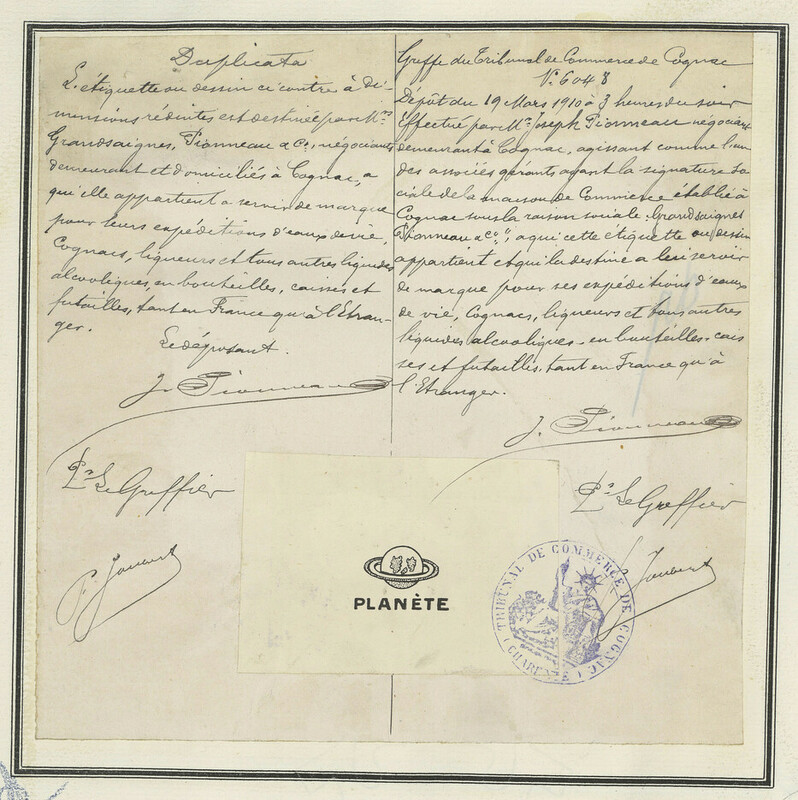 Duplicata
L'étiquette ou dessin ci contre à Di-
mensions réduites est destinée par M.rs
Grandsaignes, Pionneau & Co, négociants
demeurant et domiciliés à Cognac, a
qu'elle appartient a servir de marque
pour leurs expéditions d'eaux de vie,
Cognacs, liqueurs et tous autres liquides
alcooliques, en bouteilles, caisses et
futailles, tant en France qu'à l'Etran-
ger.
Le déposant.
J. Pionneau
Pr Le Greffier
P. Joubert
Greffe du Tribunal de Commerce de Cognac
N. 6048
Dépôt du 19 Mars 1910 à 3 heures du soir
Effectué par Mr Joseph Pionneau négociant
demeurant à Cognac, agissant comme l'un
des associés gérants ayant la signature So-
ciale de la maison de Commerce établie à
Cognac sous la raison sociale "Grandsaignes
Pionneau & Co", a qui cette étiquette ou dessin
appartient et qui la destine a leur servir
de marque pour ses expéditions d'eaux
de vie, Cognacs, liqueurs et tous autres
liquides alcooliques - en bouteilles - cais
ses et futailles, tant en France qu'à
l'Etranger.
J. Pionneau
Pr Le Greffier
Joubert
PLANÈTE
TRIBUNAL DE COMMERCE DE COGNAC
(CHARENTE)